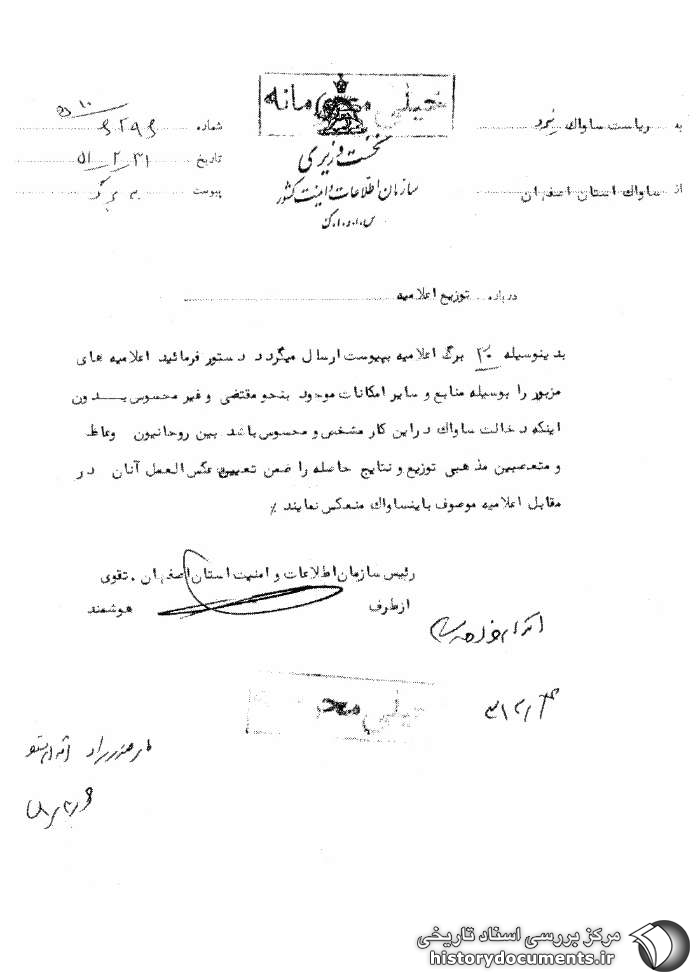 خیلی محرمانه
نخست وزیری
سازمان اطلاعات و امنیت کشور
س.ا.و.ا.ک
به ریاست ساواک
از ساواک استان اصفهان
شماره
تاریخ ۵۱/۲/۳۱
پیوست برگ
درباره توزیع اعلامیه
بدینوسیله ۲۰ برگ اعلامیه بپیوست ارسال میگردد دستور فرمائید اعلامیه های
مزبور را بوسیله منابع و سایر امکانات موجود بنحو مقتضی و غیر محسوس بدون
اینکه دخالت ساواک دراین کار مشخص و محسوس باشد بین روحانیون وعاظ
و متعصبین مذهبی توزیع و نتایج حاصله را ضمن تعیین عکس العمل آنان در
مقابل اعلامیه موصوف باینساواک منعکس نمایند ٪
رئیس سازمان اطلاعات و امنیت استان اصفهان . تقوی
ازطرف هوشمند
خیلی محرمانه
مرکز بررسی اسناد تاریخی
historydocuments.ir